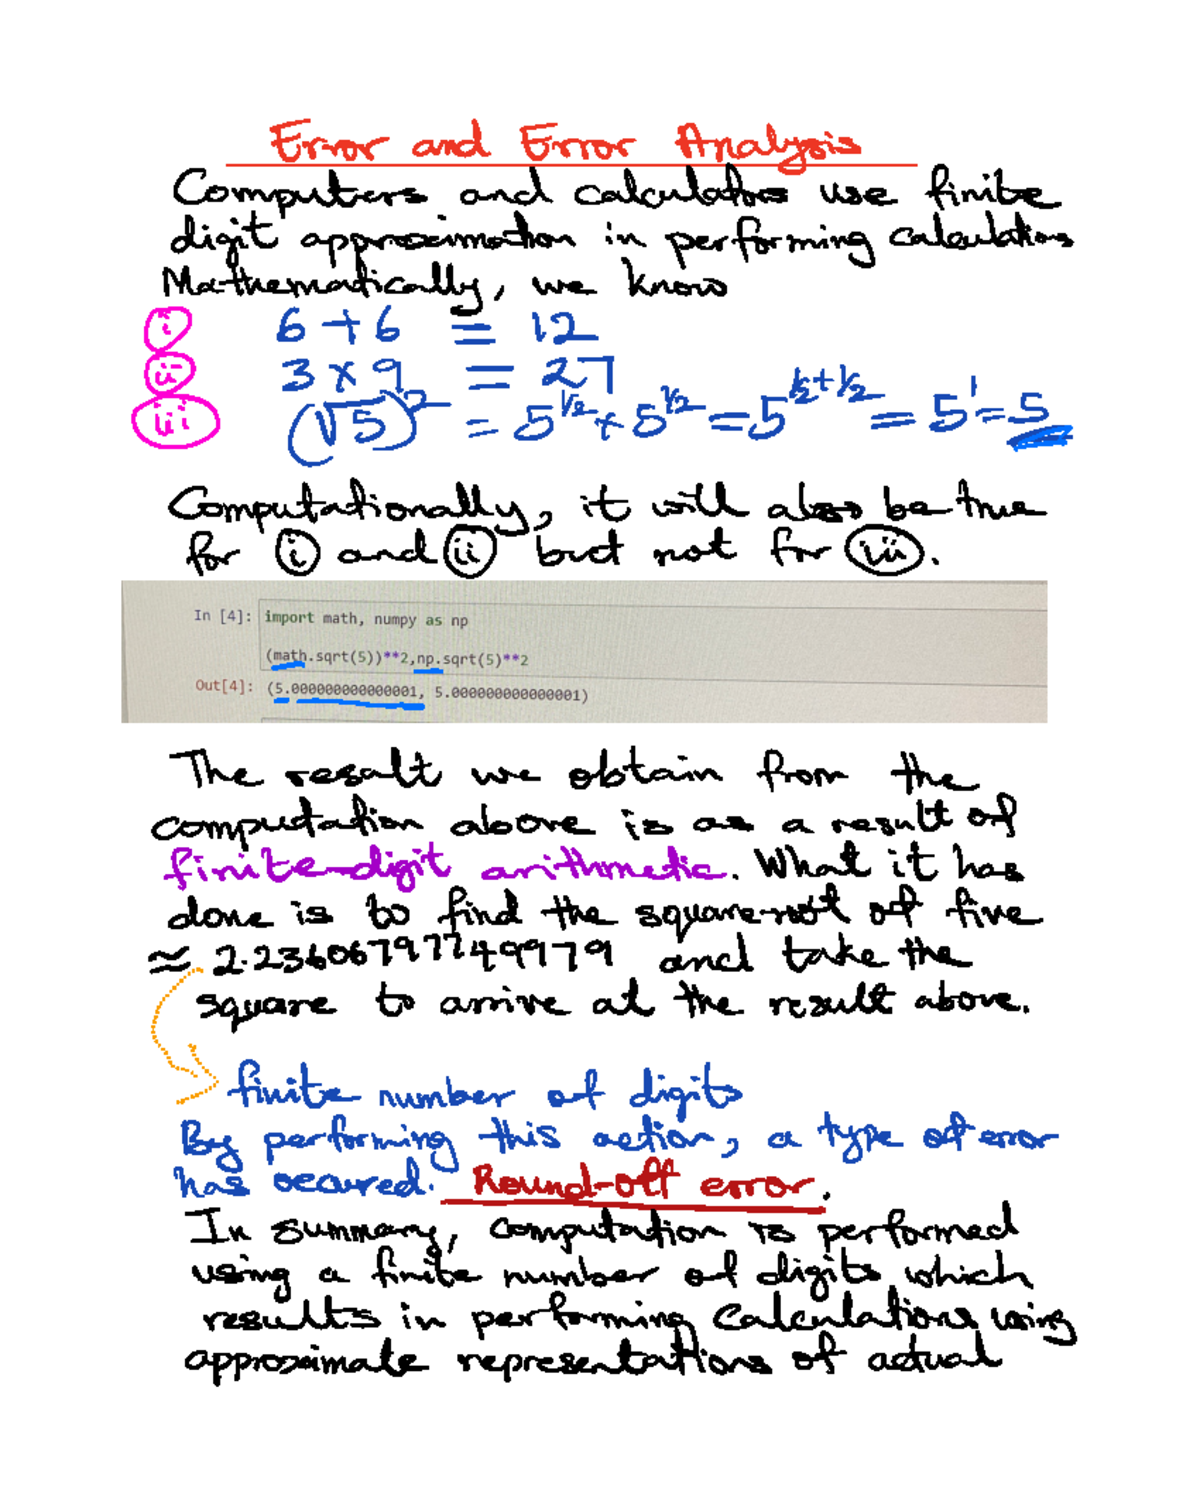 Error and Error Analysis
Computers and calculators use finite
digit approximation in performing calculations
Mathematically, we know
i 6 + 6 = 12
ii 3 × 9 = 27
iii (√5)² = 5^1/2 × 5^1/2 = 5^1/2+1/2 = 5^1 = 5
Computationally, it will also be true
for i and ii but not for iii.
In [4]: import math, numpy as np
(math.sqrt(5))**2,np.sqrt(5)**2
Out[4]: (5.000000000000001, 5.000000000000001)
The result we obtain from the
computation above is as a result of
finite-digit arithmetic. What it has
done is to find the square-root of five
≈ 2.23606797749979 and take the
square to arrive at the result above.
finite number of digits
By performing this action, a type of error
has occured. Round-off error.
In summary, computation is performed
using a finite number of digits which
results in performing calculations using
approximate representations of actual